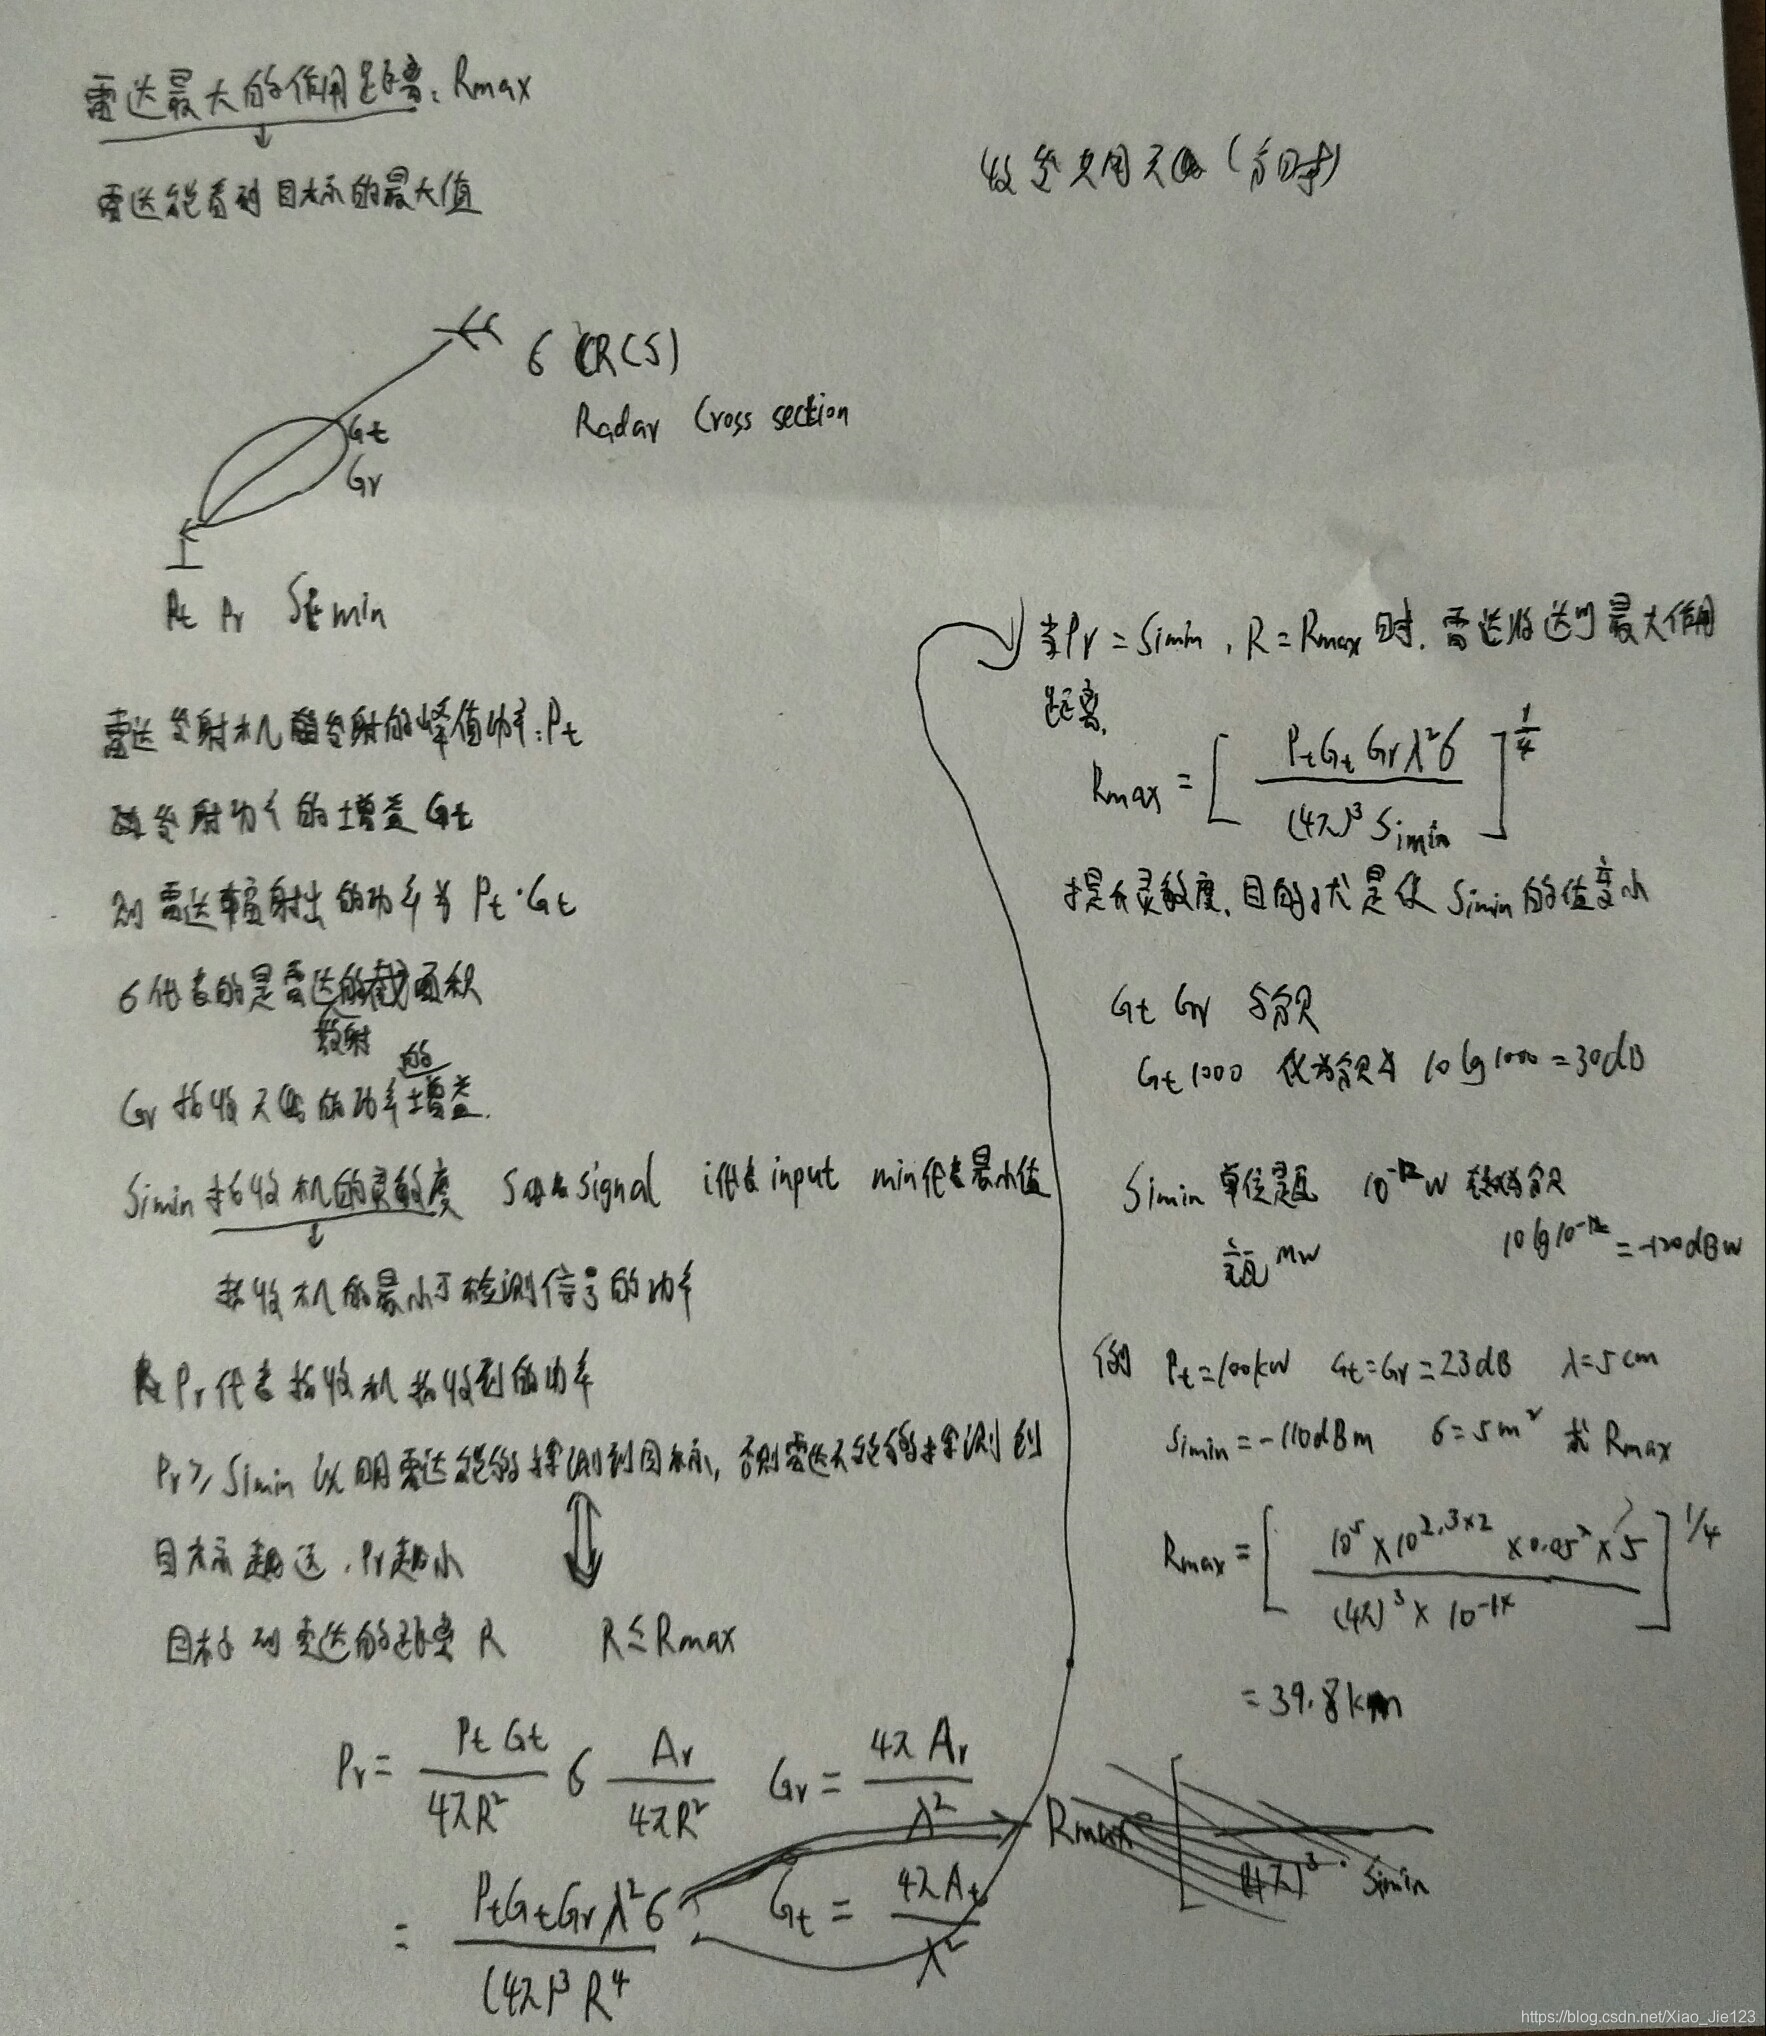 雷达最大的作用距离：Rmax
雷达能看到目标的最大值
收发共用天线（分时）
σ (RCS)
Radar Cross section
Gt
Gr
Pt Pr Simin
雷达发射机发射的峰值功率：Pt
发射功率的增益 Gt
则雷达辐射出的功率为 Pt·Gt
σ代表的是雷达的截面积
散射
Gr 接收天线的功率的增益.
Simin 接收机的灵敏度 S代表signal i代表input min代表最小值
接收机的最小可检测信号的功率
Pr代表接收机接收到的功率
Pr≥Simin 说明雷达能够探测到目标，否则雷达不能够探测到
目标越远，Pr越小
目标到雷达的距离 R R≤Rmax
Pr = PtGt/4πR² σ Ar/4πR² Gr = 4πAr/λ²
= PtGtGrλ²σ/(4π)³R⁴ Gt = 4πAt/λ²
当Pr=Simin，R=Rmax时，雷达将达到最大作用
距离.
Rmax = [PtGtGrλ²σ/(4π)³Simin]^1/4
提升灵敏度，目的就是使Simin的值变小
Gt Gr 与分贝
Gt 1000 化为分贝为 10lg1000=30dB
Simin 单位是瓦 10⁻¹²W 转化为分贝
毫瓦 mW 10lg10⁻¹²=-120dBW
例 Pt=100kW Gt=Gr=23dB λ=5cm
Simin=-110dBm σ=5m² 求Rmax
Rmax = [10⁵×10^2.3×2×0.05²×5/(4π)³×10⁻¹⁴]^1/4
=39.8km
Rmax (4π)³·Simin
https://blog.csdn.net/Xiao_Jie123